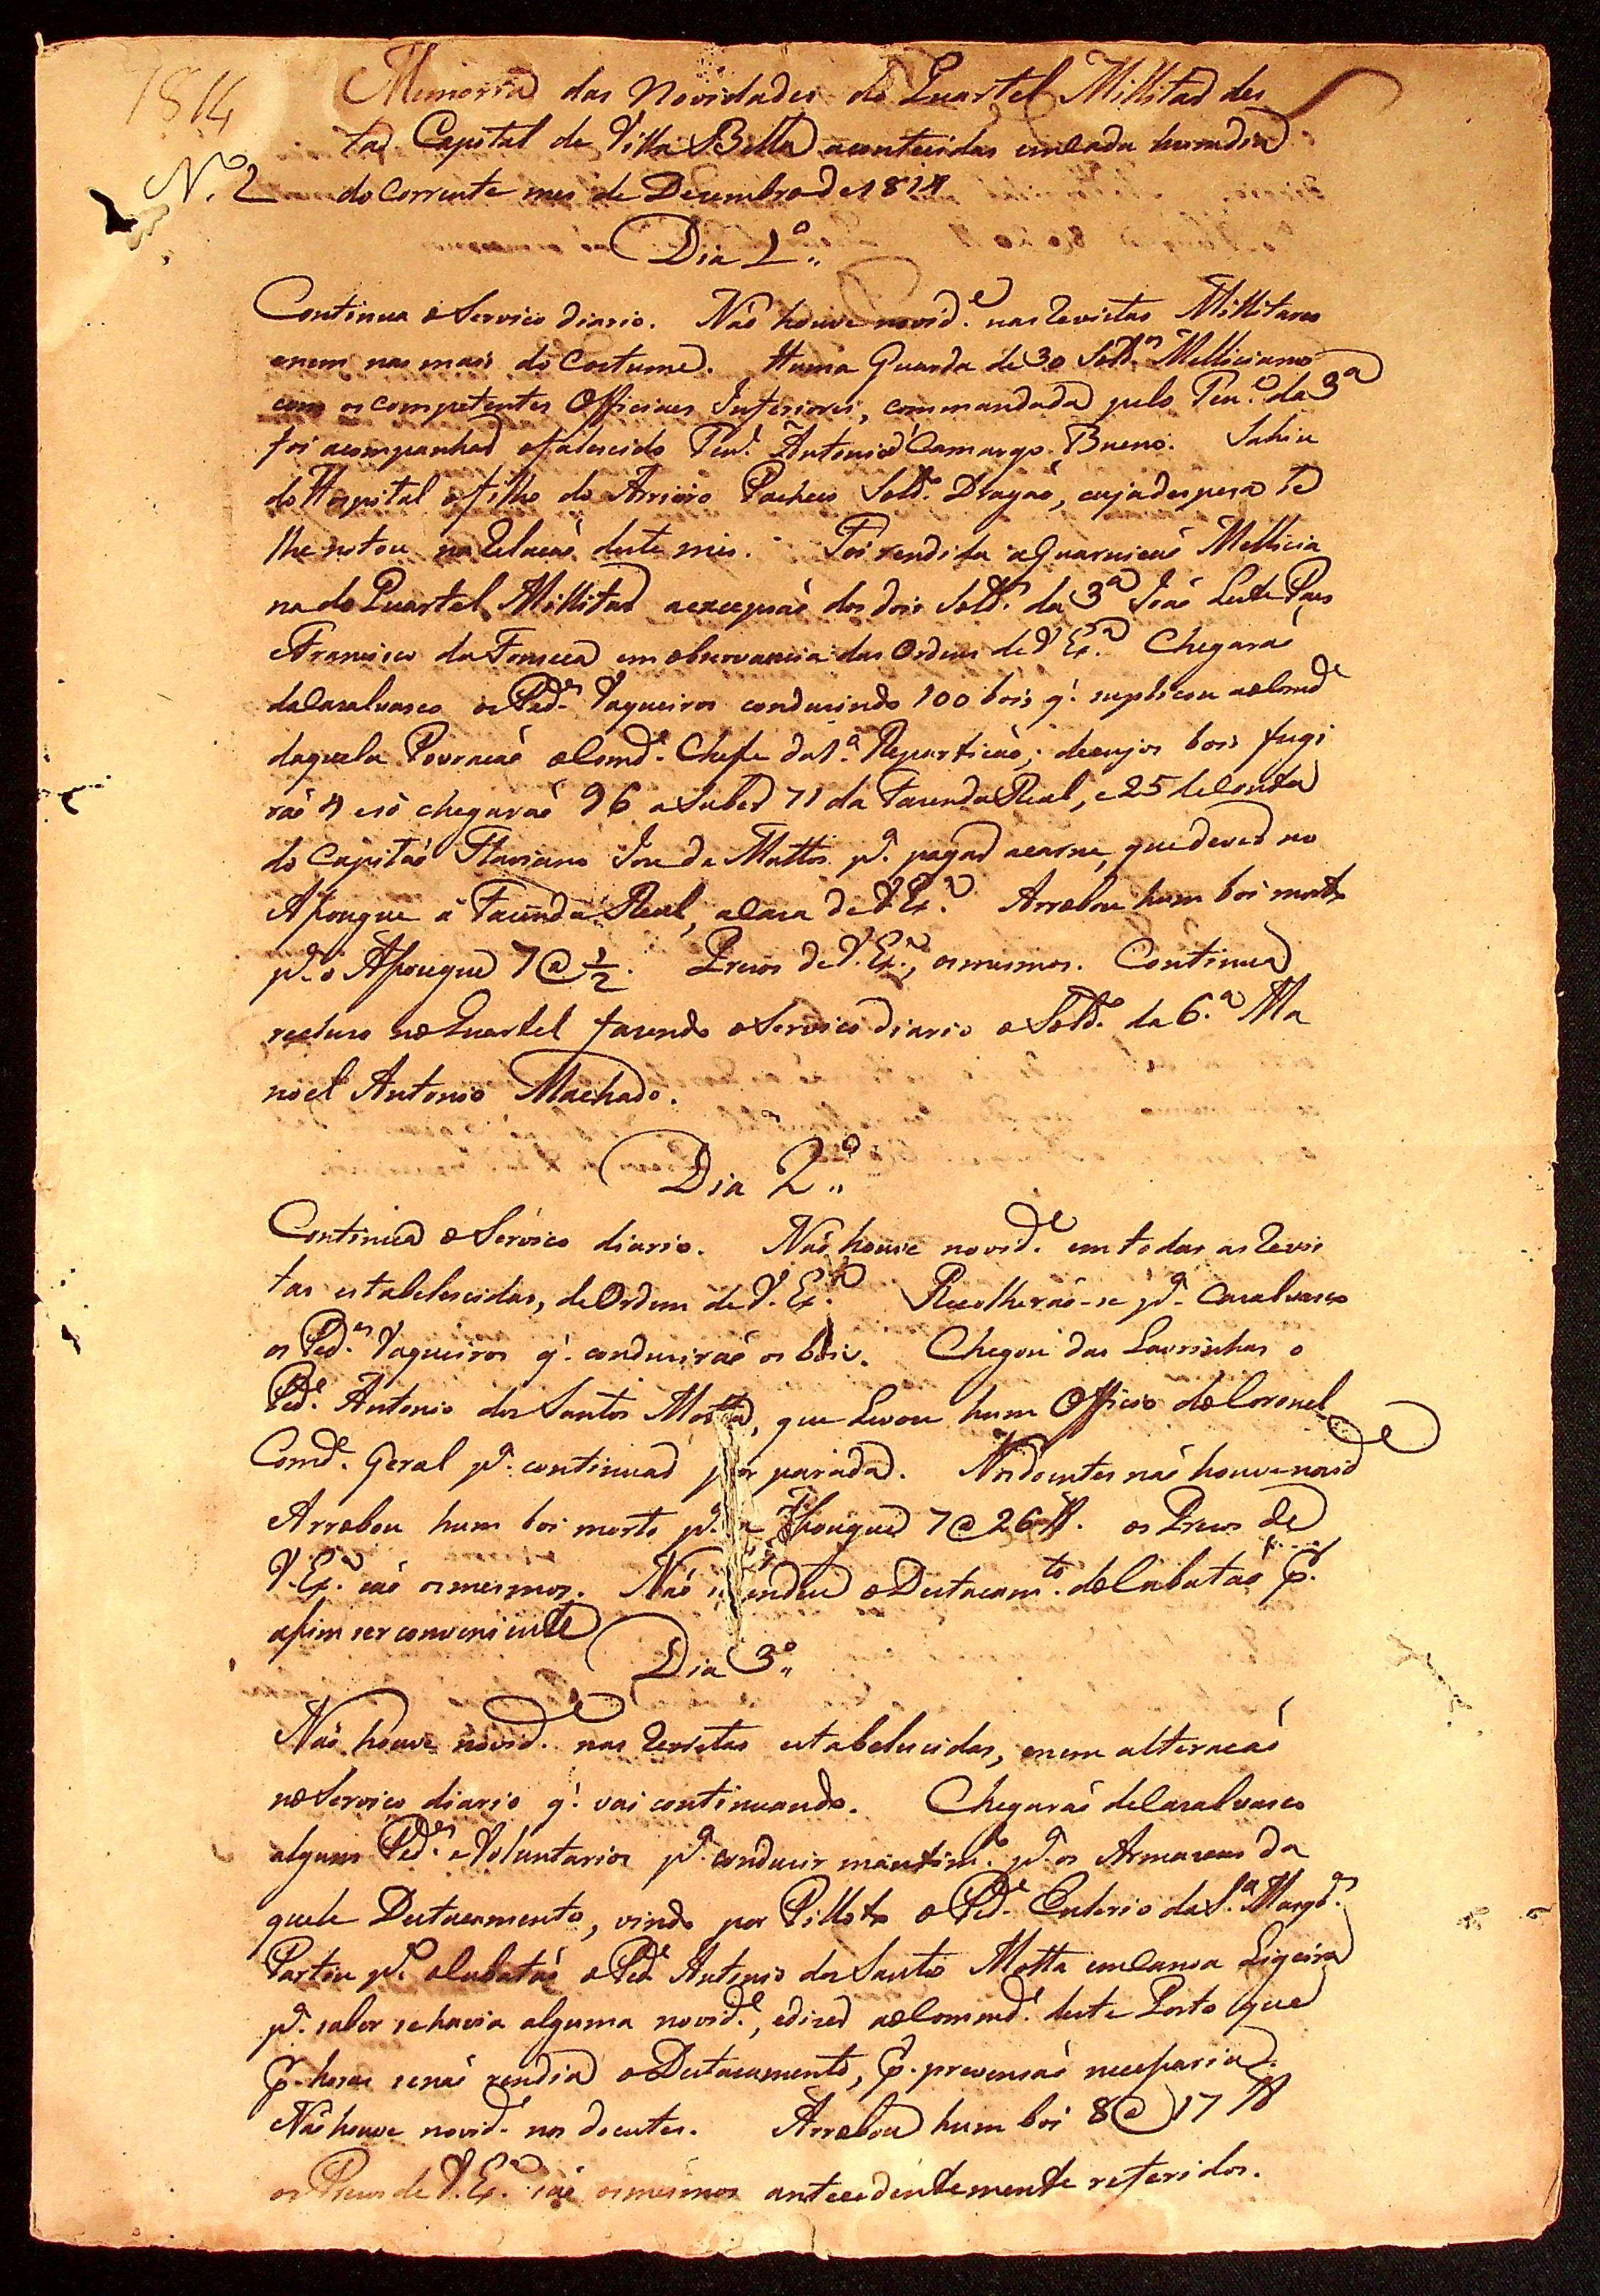 1814
Memoria das Novidades do Quartel Millitar des
ta Capital de Villa Bella acontecidas em cada hum dia
N.º 2 do Corrente mes de Dezembro de 1814
Dia 1.º
Continua o Serviço diario. Não houve novid.e nas Revistas Millitares
e nem nas mais do Costume. Huma Guarda de 30 Sold.os Mellicianos
com os competentes Officiaes Inferiores, commandada pelo Ten.e da 3.a
foi acompanhar o falescido Ten.e Antonio d Camargo Bueno. Sahiu
do Hospital o filho do Arrieiro Pacheco Sold.o Dragão, cuja despesa se
lhe notou na Relação deste mes. Foi rendida a Guarnição Mellicia
na do Quartel Millitar a excepsão dos dois Sold.os da 3.a João Leite Paes
e Francisco da Fonseca em observancia das Ordens de V. Ex.a Chegarão
de Casalvasco os Ped.es Vaqueiros conduzindo 100 bois q.' suplicou ao Comd.e
daquela Povoação o Comd.e Chefe da 1.a Repartição; de cujos bois fugi
rão 4 e só chegarão 96 a saber 71 da Fazenda Real, e 25 de Conta
do Capitão Flaviano Jose de Mattos p.a pagar a carne, que deve no
Assougue á Fazenda Real, a Casa de V. Ex.a Arrobou hum boi morto
p.a o Assougue 7 @ 1/2. Prezos de V. Ex.a, os mesmos. Continua
recluso no Quartel fazendo o Serviço diario o Sold.o da 6.a Ma
noel Antonio Machado.
Dia 2.º
Continua o Serviço diario. Não houve novid.e em todas as Revis
tas estabelescidas, de Ordem de V. Ex.a Recolherão-se p.a Casalvasco
os Ped.es Vaqueiros q.' conduzirão os bois. Chegou das Lavrinhas o
Ped.e Antonio dos Santos Motta, que Levou hum Officio do Coronel
Comd.e Geral p.a continuar por parada. Nos doentes não houve novid.e
Arrobou hum boi morto p.a o Assougue 7 @ 26 lb. os Prezos de
V. Ex.a são os mesmos. Não rendeu o Destacam.to do Cubatão p.r
assim ser conveniente
Dia 3.º
Não houve novid.e nas Revistas estabelescidas, e nem alteração
no Serviço diario q.' vai continuando. Chegarão de Casalvasco
alguns Ped.es e Voluntarios p.a conduzir mantim.o p.a os Armazens da
quele Destacamento, vindo por Pilloto o Ped.e Eulerio da S.a Marg.da
Partiu p.a o Cubatão o Ped.e Antonio dos Santos Motta em Canoa Ligeira
p.a saber se havia alguma novid.e, e dizer ao Commd.e deste Porto que
p.r hora se não rendia o Destacamento, p.r prevensão necessaria.
Não houve novid.e nos doentes. Arrobou hum boi 8 @ 17 lb
os Prezos de V. Ex.a são os mesmos antecedentemente referidos.